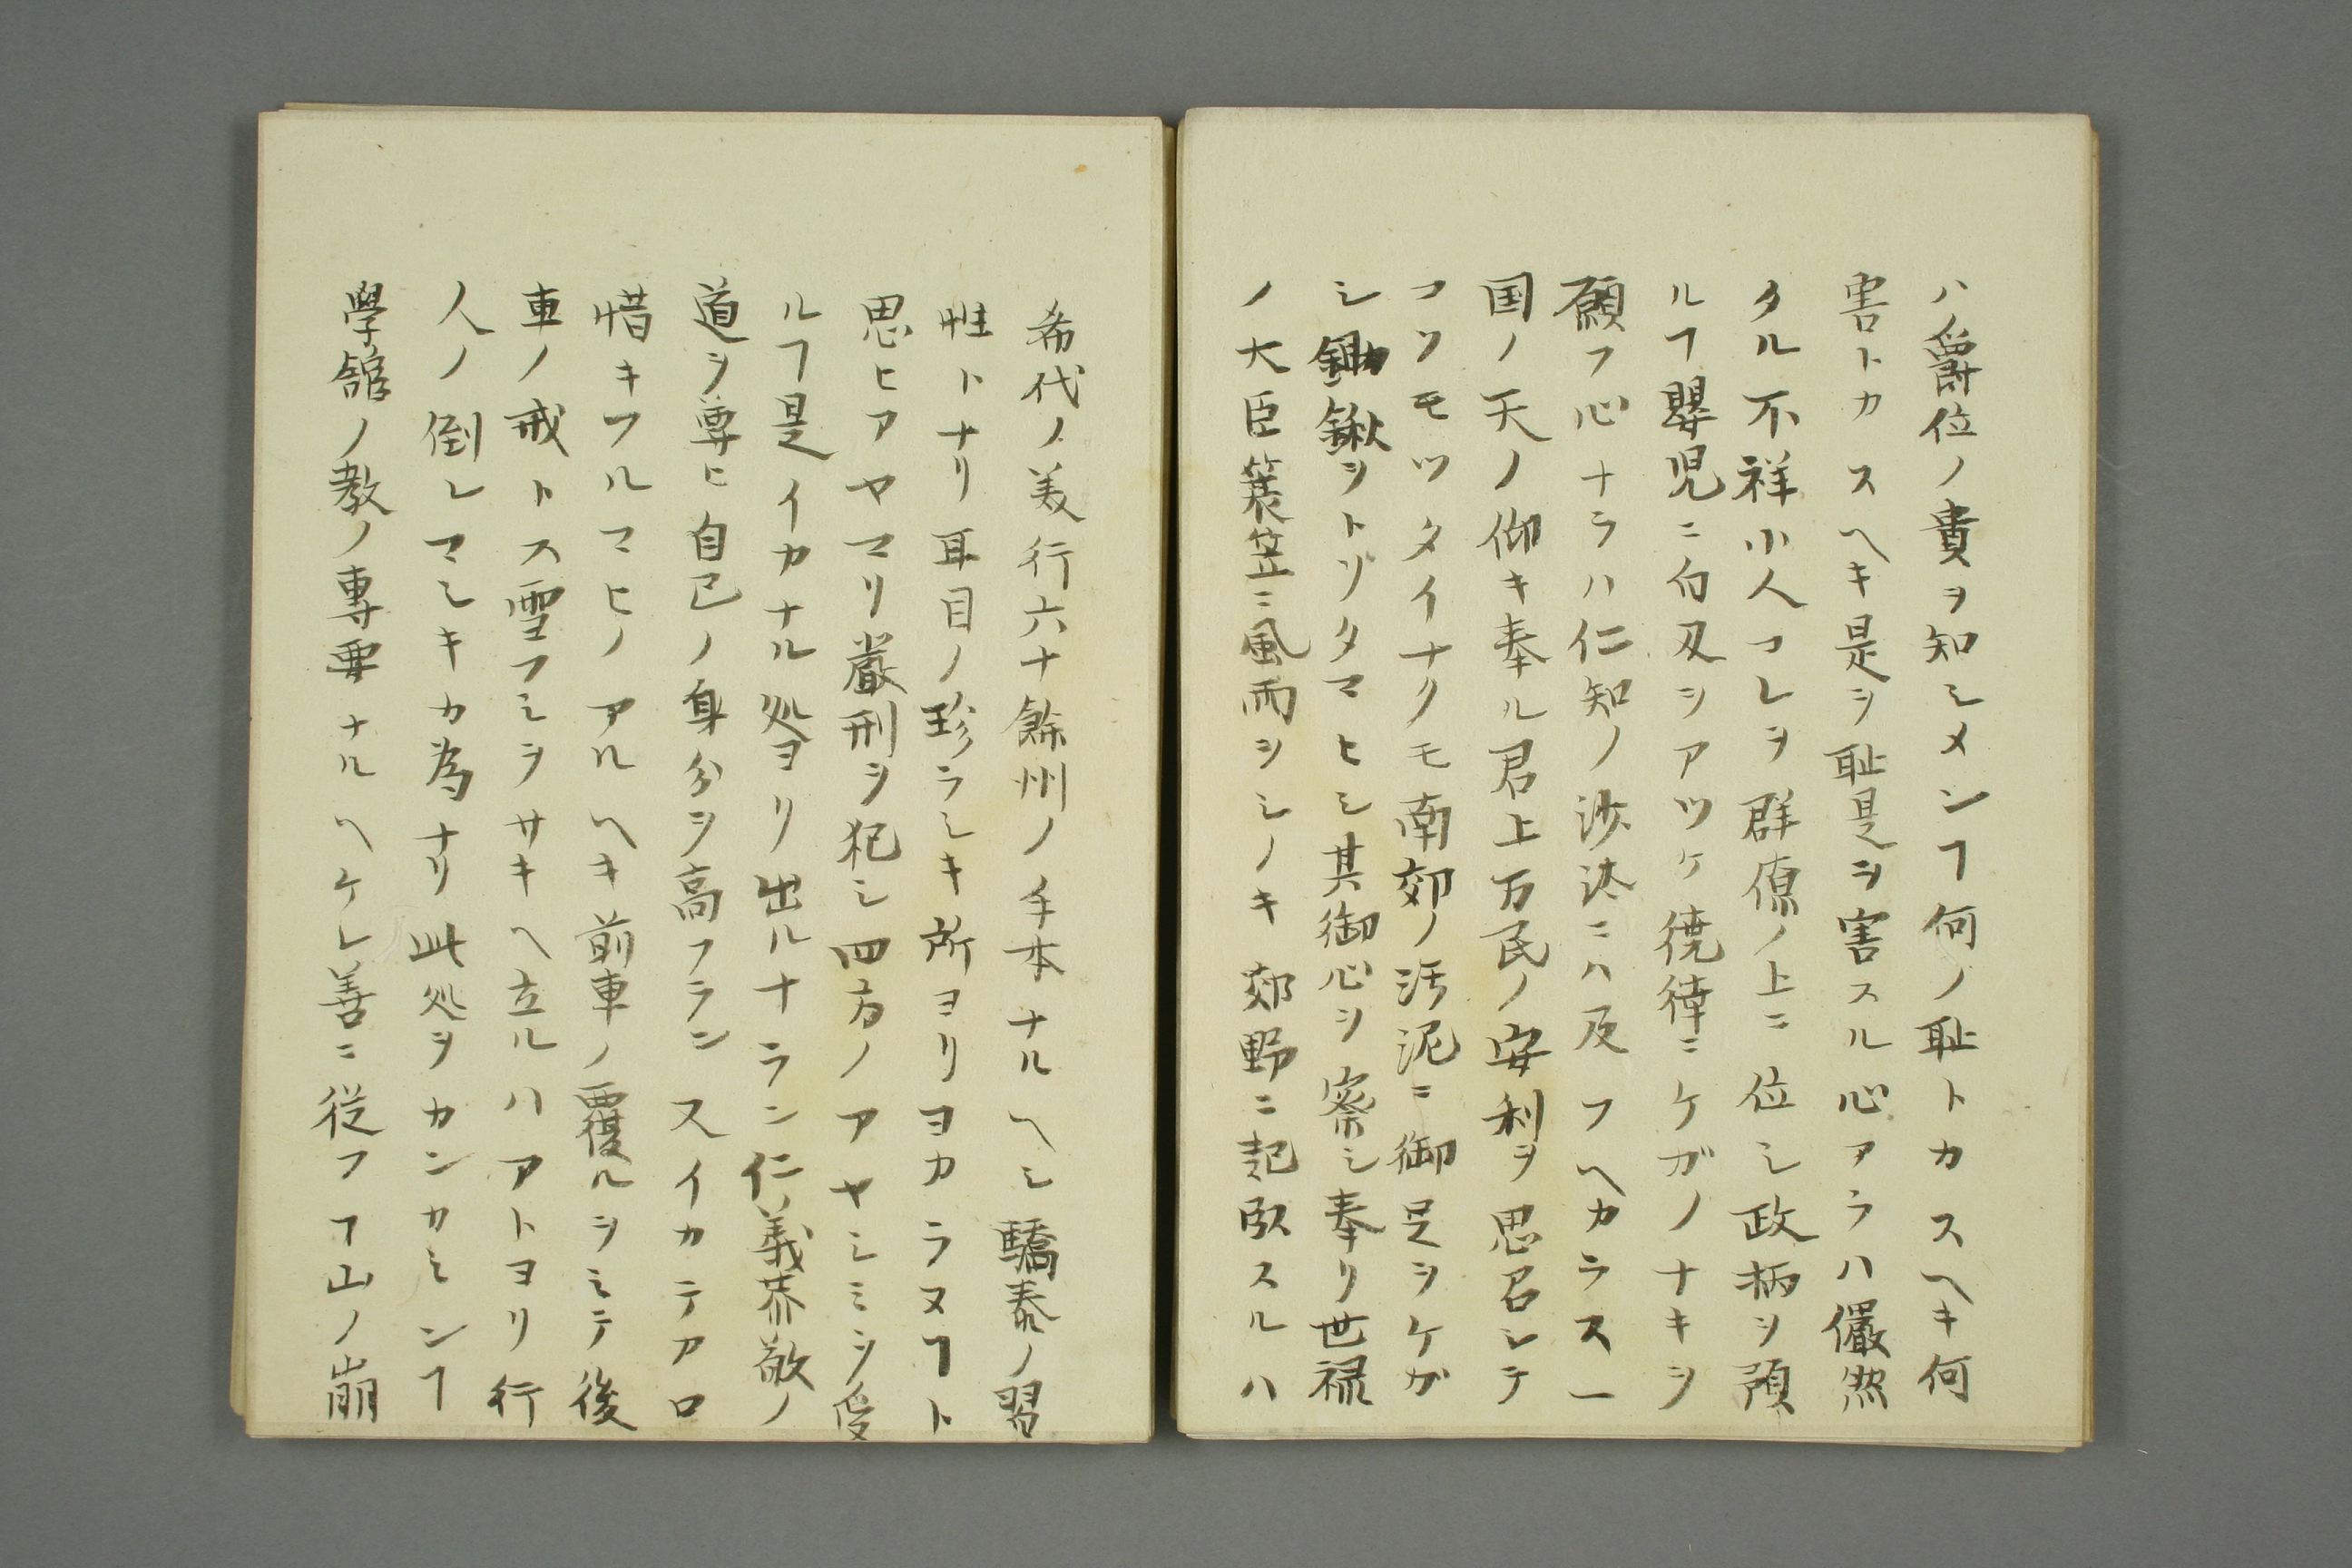 ハ爵位ノ貴ヲ知シメンヿ何ノ耻トカスヘキ何
害トカスヘキ是ヲ耻是ヲ害スル心アラハ儼然
タル不祥小人コレヲ群僚ノ上ニ位シ政柄ヲ預
ルヿ嬰児ニ白刄ヲアツケ僥倖ニケガノナキヲ
願フ心ナラハ仁知ノ沙汰ニハ及フヘカラス一
国ノ天ノ仰キ奉ル君上万民ノ安利ヲ思召シテ
コソモツタイナクモ南郊ノ汚泥ニ御足ヲケガ
シ鋤鍬ヲトリタマヒシ其御心ヲ察シ奉リ世禄
ノ大臣簑笠ニ風雨ヲシノキ郊野ニ起臥スルハ
希代ノ美行六十餘州ノ手本ナルヘシ驕泰ノ習
性トナリ耳目ノ珍ラシキ所ヨリヨカラヌヿト
思ヒアヤマリ嚴刑ヲ犯シ四方ノアヤシミヲ受
ルヿ是イカナル処ヨリ出ルナラン仁義恭敬ノ
道ヲ尊ヒ自己ノ身分ヲ高フランスイカテアロ
惜キフルマヒノアルヘキ前車ノ覆ルヲミテ後
車ノ戒トス雪フミヲサキヘ立ルハアトヨリ行
人ノ倒レマシキカ為ナリ此処ヲカンカミンヿ
學館ノ教ノ専要ナルヘケレ善ニ従フヿ山ノ崩